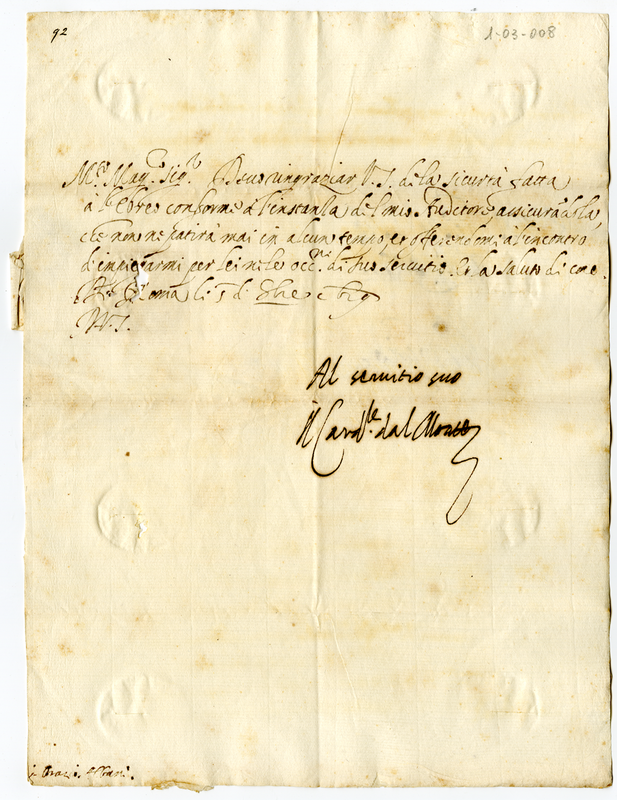 92
1-03-008
M.to Mag.co Sig.r Devo ringratiar V.S. de la sicurtà fatta
a l'Ebreo conforme à l'instanza del mio Auditore, assicurãdola,
che non ne patirà mai in alcun tempo, et offerendomi à l'incontro
d'impiegarmi per lei ne le occ.ni di suo servitio. Et la saluto di core.
Di Roma li 5 di
V.S.
Al servitio suo
Il Card.le dal Monte